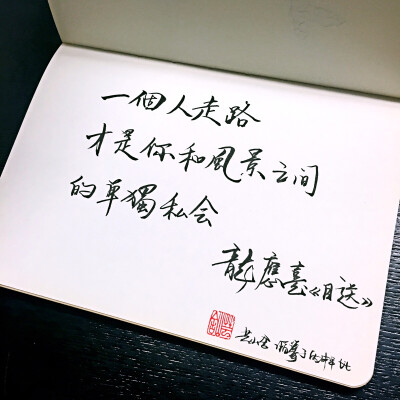 一個人走路
才是你和風景之间
的单獨私会
龍應臺《目送》